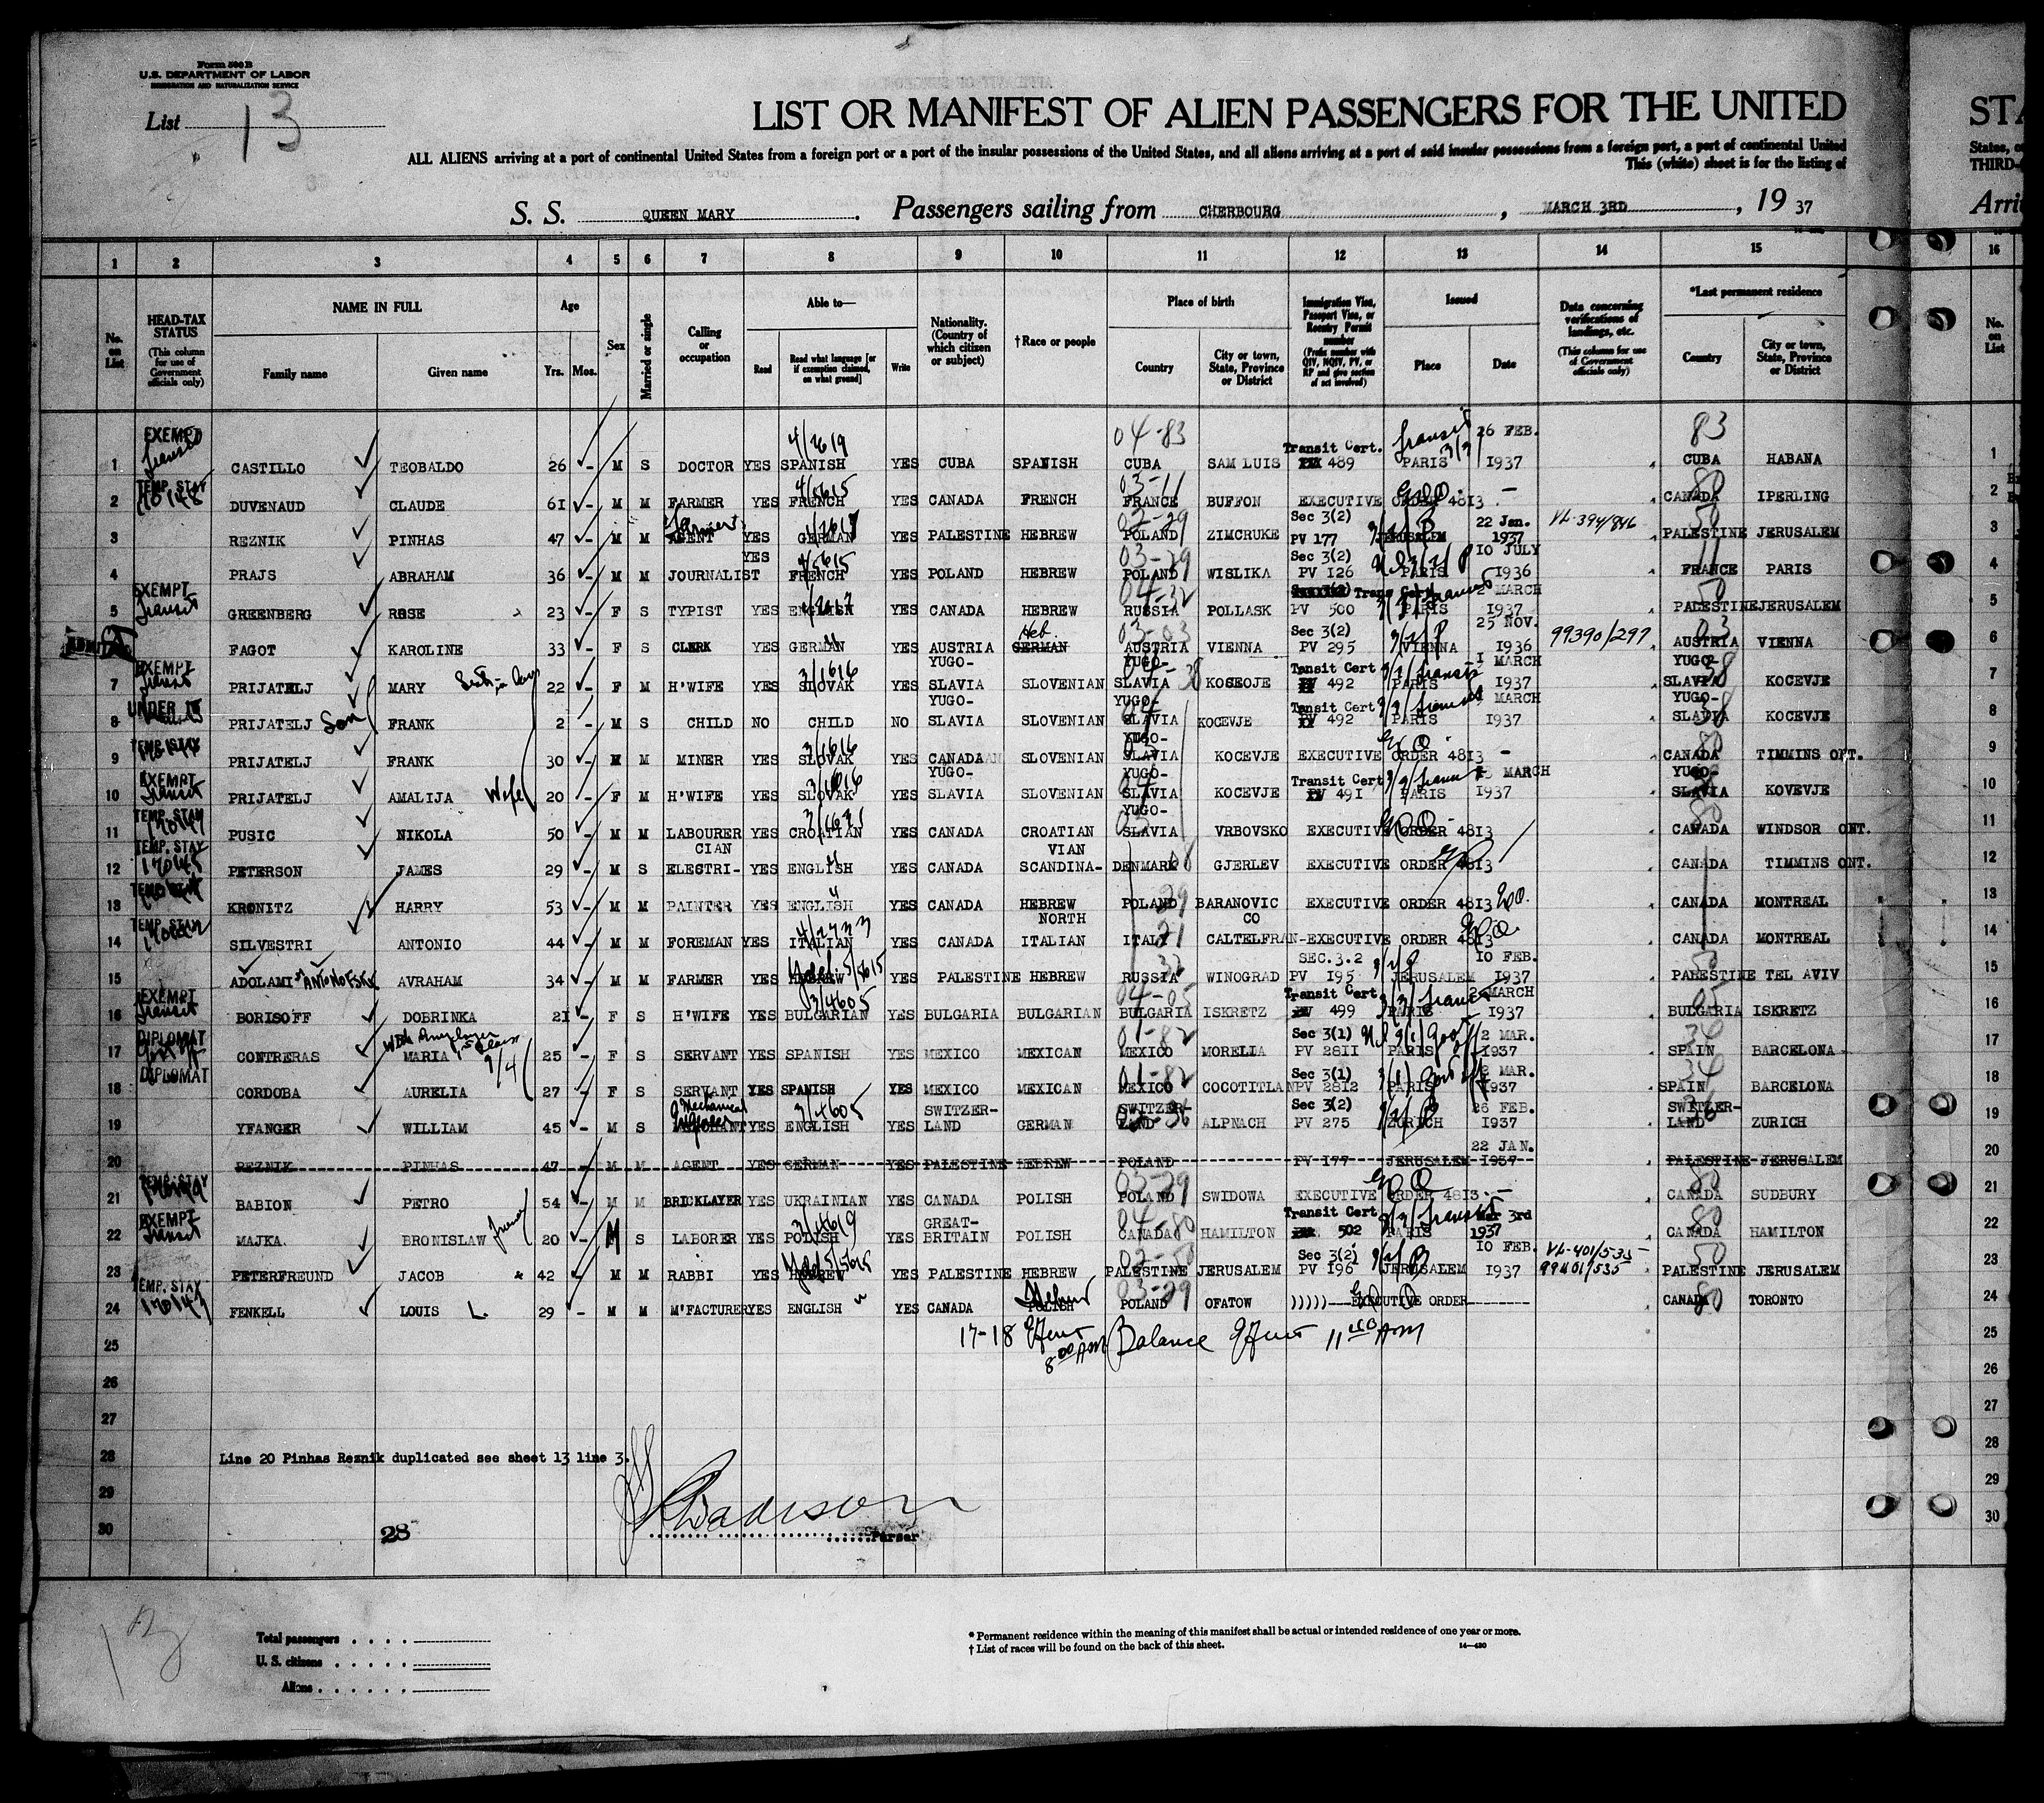 Form 500 B
U.S. DEPARTMENT OF LABOR
IMMIGRATION AND NATURALIZATION SERVICE
List 13
LIST OR MANIFEST OF ALIEN PASSENGERS FOR THE UNITED
STA
ALL ALIENS arriving at a port of continental United States from a foreign port or a port of the insular possessions of the United States, and all aliens arriving at a port of said insular possessions from a foreign port, a port of continental United
States, o
This (white) sheet is for the listing of
THIRD-
S. S. QUEEN MARY. Passengers sailing from CHERBOURG, MARCH 3RD, 19 37
Arri
1 2 3 4 5 6 7 8 9 10 11 12 13 14 15 16
No. on List
HEAD-TAX STATUS (This column for use of Government officials only)
NAME IN FULL
Family name Given name
Age Yrs. Mos.
Sex
Married or single
Calling or occupation
Able to—
Read Read what language [or if exemption claimed, on what ground] Write
Nationality. (Country of which citizen or subject)
† Race or people
Place of birth
Country City or town, State, Province or District
Immigration Visa, Passport Visa, or Reentry Permit number (Prefix number with QIV, NQIV, PV, or RP and give section of act involved)
Issued
Place Date
Data concerning verifications of landings, etc. (This column for use of Government officials only)
*Last permanent residence
Country City or town, State, Province or District
No. on List
1 EXEMPT Transit CASTILLO TEOBALDO 26 - M S DOCTOR YES SPANISH YES CUBA SPANISH CUBA SAM LUIS Transit Cert. 489 PARIS 26 FEB. 1937 CUBA HABANA 1
2 TEMP. STAY DUVENAUD CLAUDE 61 - M M FARMER YES FRENCH YES CANADA FRENCH FRANCE BUFFON EXECUTIVE ORDER 4813 - CANADA IPERLING 2
3 REZNIK PINHAS 47 - M M AGENT YES GERMAN YES PALESTINE HEBREW POLAND ZIMCRUKE Sec 3(2) PV 177 JERUSALEM 22 Jan. 1937 VL-394/846 PALESTINE JERUSALEM 3
4 PRAJS ABRAHAM 36 - M M JOURNALIST YES FRENCH YES POLAND HEBREW POLAND WISLIKA Sec 3(2) PV 126 PARIS 10 JULY 1936 FRANCE PARIS 4
5 EXEMPT Transit GREENBERG ROSE 23 - F S TYPIST YES ENGLISH YES CANADA HEBREW RUSSIA POLLASK Trans Cert PV 500 PARIS 2 MARCH 1937 PALESTINE JERUSALEM 5
6 FAGOT KAROLINE 33 - F S CLERK YES GERMAN YES AUSTRIA Heb. GERMAN AUSTRIA VIENNA Sec 3(2) PV 295 VIENNA 25 NOV. 1936 99390/297 AUSTRIA VIENNA 6
7 EXEMPT Transit PRIJATELJ MARY 22 - F M H'WIFE YES SLOVAK YES YUGO-SLAVIA SLOVENIAN YUGO-SLAVIA KOSEOJE Transit Cert 492 PARIS 1 MARCH 1937 YUGO-SLAVIA KOCEVJE 7
8 UNDER 16 PRIJATELJ Son FRANK 2 - M S CHILD NO CHILD NO YUGO-SLAVIA SLOVENIAN YUGO-SLAVIA KOCEVJE Transit Cert 492 PARIS MARCH 1937 YUGO-SLAVIA KOCEVJE 8
9 TEMP. STAY PRIJATELJ FRANK 30 - M M MINER YES SLOVAK YES CANADA SLOVENIAN YUGO-SLAVIA KOCEVJE EXECUTIVE ORDER 4813 - CANADA TIMMINS ONT. 9
10 EXEMPT Transit PRIJATELJ AMALIJA Wife 20 - F M H'WIFE YES SLOVAK YES YUGO-SLAVIA SLOVENIAN YUGO-SLAVIA KOCEVJE Transit Cert 491 PARIS MARCH 1937 YUGO-SLAVIA KOVEVJE 10
11 TEMP. STAY PUSIC NIKOLA 50 - M M LABOURER YES CROATIAN YES CANADA CROATIAN YUGO-SLAVIA VRBOVSKO EXECUTIVE ORDER 4813 CANADA WINDSOR ONT. 11
12 TEMP. STAY PETERSON JAMES 29 - M S ELECTRI-CIAN YES ENGLISH YES CANADA SCANDINA-VIAN DENMARK GJERLEV EXECUTIVE ORDER 4813 CANADA TIMMINS ONT. 12
13 TEMP. STAY KRONITZ HARRY 53 - M M PAINTER YES ENGLISH YES CANADA HEBREW POLAND BARANOVIC EXECUTIVE ORDER 4813 CANADA MONTREAL 13
14 TEMP. STAY SILVESTRI ANTONIO 44 - M M FOREMAN YES ITALIAN YES CANADA NORTH ITALIAN ITALY CALTELFRAN-CO EXECUTIVE ORDER 4813 CANADA MONTREAL 14
15 ADOLAMI AVRAHAM 34 - M M FARMER YES HEBREW YES PALESTINE HEBREW RUSSIA WINOGRAD SEC.3.2 PV 195 JERUSALEM 10 FEB. 1937 PALESTINE TEL AVIV 15
16 EXEMPT Transit BORISOFF DOBRINKA 21 - F S H'WIFE YES BULGARIAN YES BULGARIA BULGARIAN BULGARIA ISKRETZ Transit Cert 499 PARIS 2 MARCH 1937 BULGARIA ISKRETZ 16
17 DIPLOMAT CONTRERAS MARIA 25 - F S SERVANT YES SPANISH YES MEXICO MEXICAN MEXICO MORELIA Sec 3(1) PV 2811 PARIS 2 MAR. 1937 SPAIN BARCELONA 17
18 DIPLOMAT CORDOBA AURELIA 27 - F S SERVANT YES SPANISH YES MEXICO MEXICAN MEXICO COCOTITLAN Sec 3(1) PV 2812 PARIS 2 MAR. 1937 SPAIN BARCELONA 18
19 YFANGER WILLIAM 45 - M S Mechanical YES ENGLISH YES SWITZER-LAND GERMAN SWITZER-LAND ALPNACH Sec 3(2) PV 275 ZURICH 26 FEB. 1937 SWITZER-LAND ZURICH 19
20 REZNIK PINHAS 47 - M M AGENT YES GERMAN YES PALESTINE HEBREW POLAND PV 177 JERUSALEM 22 JAN. 1937 PALESTINE JERUSALEM 20
21 TEMP. STAY BABION PETRO 54 - M M BRICKLAYER YES UKRAINIAN YES CANADA POLISH POLAND SWIDOWA EXECUTIVE ORDER 4813 - CANADA SUDBURY 21
22 EXEMPT Transit MAJKA BRONISLAW 20 - M S LABORER YES POLISH YES GREAT-BRITAIN POLISH CANADA HAMILTON Transit Cert 502 PARIS Mar 3rd 1937 CANADA HAMILTON 22
23 PETERFREUND JACOB 42 - M M RABBI YES HEBREW YES PALESTINE HEBREW PALESTINE JERUSALEM Sec 3(2) PV 196 JERUSALEM 10 FEB. 1937 VL-401/535 99401/535 PALESTINE JERUSALEM 23
24 TEMP. STAY FENKELL LOUIS L. 29 - M M M'FACTURER YES ENGLISH YES CANADA Hebrew POLISH POLAND OFATOW )))))—EXECUTIVE ORDER CANADA TORONTO 24
25 17-18 8 00 AM Balance 11 AM 25
26 26
27 27
28 Line 20 Pinhas Reznik duplicated see sheet 13 line 3. 28
29 29
30 28 Purser 30
Total passengers . . . .
U. S. citizens . . . . .
Aliens . . . . . .
* Permanent residence within the meaning of this manifest shall be actual or intended residence of one year or more.
† List of races will be found on the back of this sheet. 14—430